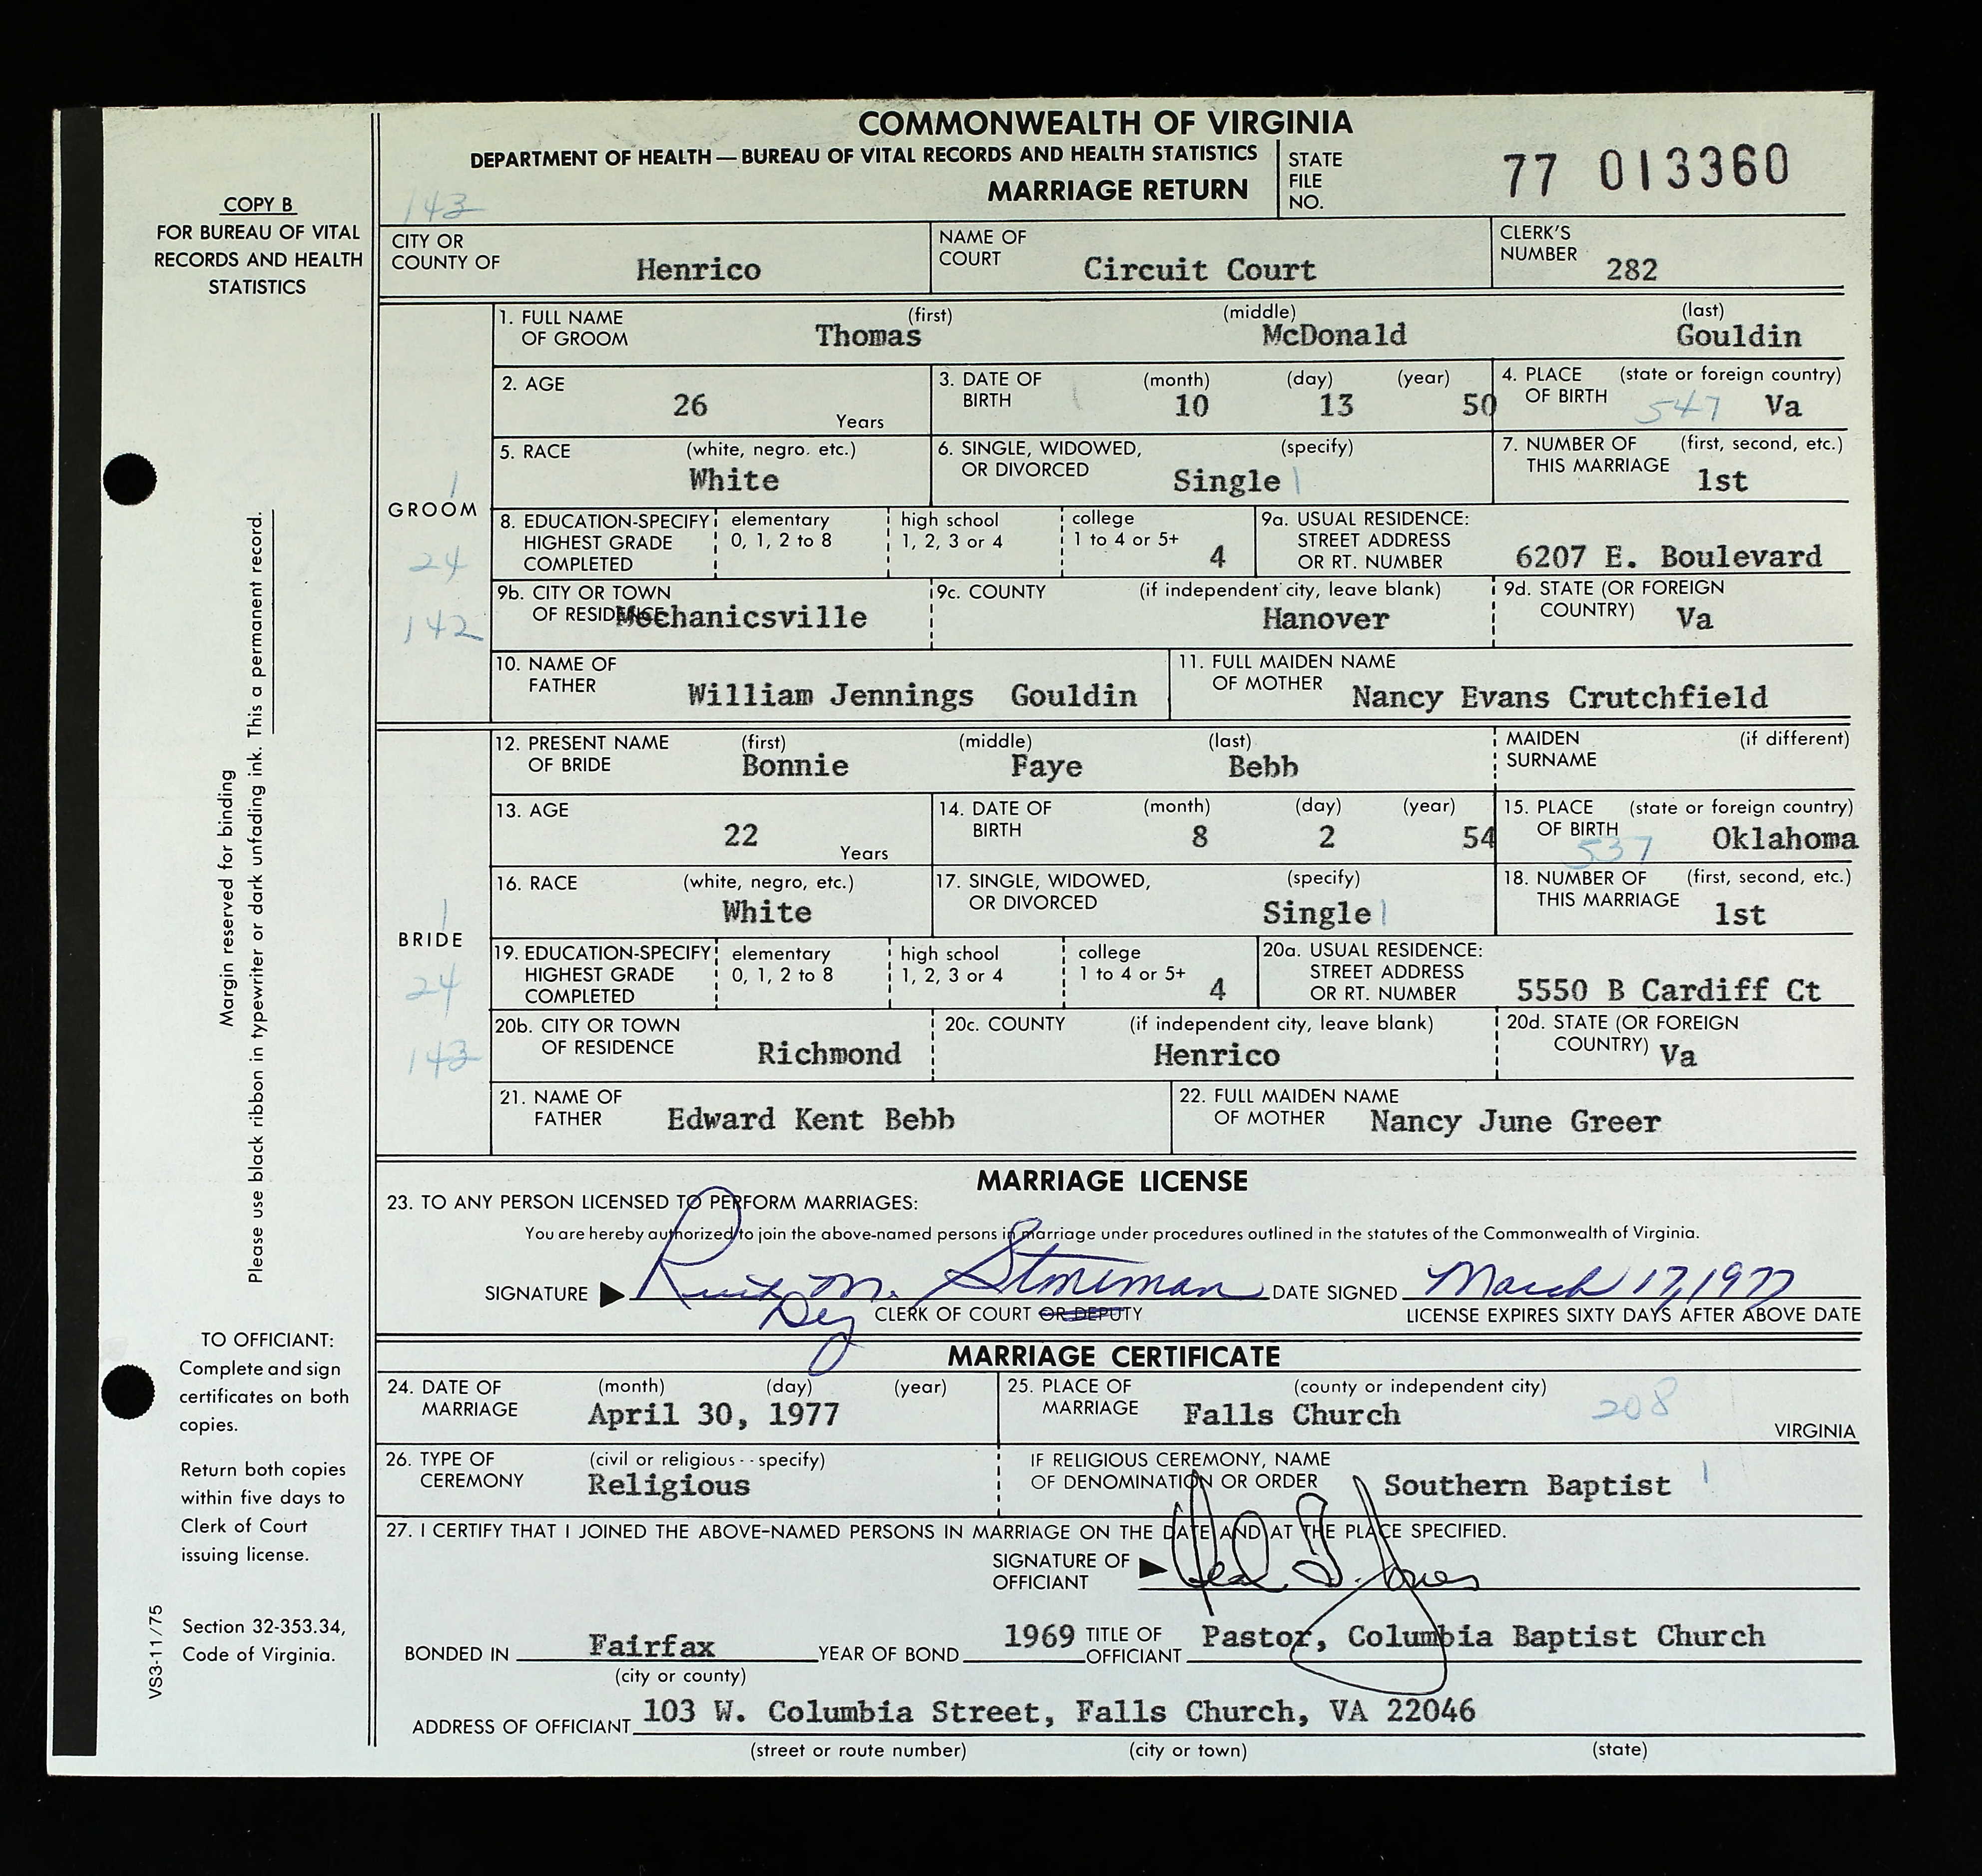 COMMONWEALTH OF VIRGINIA
DEPARTMENT OF HEALTH — BUREAU OF VITAL RECORDS AND HEALTH STATISTICS
MARRIAGE RETURN
STATE FILE NO. 77 013360
143
COPY B
FOR BUREAU OF VITAL
RECORDS AND HEALTH
STATISTICS
CITY OR COUNTY OF Henrico
NAME OF COURT Circuit Court
CLERK'S NUMBER 282
GROOM
1
24
142
1. FULL NAME OF GROOM (first) Thomas (middle) McDonald (last) Gouldin
2. AGE 26 Years
3. DATE OF BIRTH (month) 10 (day) 13 (year) 50
4. PLACE OF BIRTH (state or foreign country) 547 Va
5. RACE (white, negro. etc.) White
6. SINGLE, WIDOWED, OR DIVORCED (specify) Single 1
7. NUMBER OF THIS MARRIAGE (first, second, etc.) 1st
8. EDUCATION-SPECIFY HIGHEST GRADE COMPLETED elementary 0, 1, 2 to 8 high school 1, 2, 3 or 4 college 1 to 4 or 5+ 4
9a. USUAL RESIDENCE: STREET ADDRESS OR RT. NUMBER 6207 E. Boulevard
9b. CITY OR TOWN OF RESIDENCE Mechanicsville
9c. COUNTY (if independent city, leave blank) Hanover
9d. STATE (OR FOREIGN COUNTRY) Va
10. NAME OF FATHER William Jennings Gouldin
11. FULL MAIDEN NAME OF MOTHER Nancy Evans Crutchfield
BRIDE
1
24
143
12. PRESENT NAME OF BRIDE (first) Bonnie (middle) Faye (last) Bebb
MAIDEN SURNAME (if different)
13. AGE 22 Years
14. DATE OF BIRTH (month) 8 (day) 2 (year) 54
15. PLACE OF BIRTH (state or foreign country) 537 Oklahoma
16. RACE (white, negro, etc.) White
17. SINGLE, WIDOWED, OR DIVORCED (specify) Single 1
18. NUMBER OF THIS MARRIAGE (first, second, etc.) 1st
19. EDUCATION-SPECIFY HIGHEST GRADE COMPLETED elementary 0, 1, 2 to 8 high school 1, 2, 3 or 4 college 1 to 4 or 5+ 4
20a. USUAL RESIDENCE: STREET ADDRESS OR RT. NUMBER 5550 B Cardiff Ct
20b. CITY OR TOWN OF RESIDENCE Richmond
20c. COUNTY (if independent city, leave blank) Henrico
20d. STATE (OR FOREIGN COUNTRY) Va
21. NAME OF FATHER Edward Kent Bebb
22. FULL MAIDEN NAME OF MOTHER Nancy June Greer
Margin reserved for binding
Please use black ribbon in typewriter or dark unfading ink. This a permanent record.
MARRIAGE LICENSE
23. TO ANY PERSON LICENSED TO PERFORM MARRIAGES:
You are hereby authorized to join the above-named persons in marriage under procedures outlined in the statutes of the Commonwealth of Virginia.
SIGNATURE Ruth M. Stoneman DATE SIGNED March 17, 1977
CLERK OF COURT OR DEPUTY
LICENSE EXPIRES SIXTY DAYS AFTER ABOVE DATE
MARRIAGE CERTIFICATE
24. DATE OF MARRIAGE (month) (day) (year) April 30, 1977
25. PLACE OF MARRIAGE (county or independent city) Falls Church 208 VIRGINIA
26. TYPE OF CEREMONY (civil or religious - - specify) Religious
IF RELIGIOUS CEREMONY, NAME OF DENOMINATION OR ORDER Southern Baptist 1
27. I CERTIFY THAT I JOINED THE ABOVE-NAMED PERSONS IN MARRIAGE ON THE DATE AND AT THE PLACE SPECIFIED.
SIGNATURE OF OFFICIANT Neal T. Jones
BONDED IN Fairfax (city or county) YEAR OF BOND 1969 TITLE OF OFFICIANT Pastor, Columbia Baptist Church
ADDRESS OF OFFICIANT 103 W. Columbia Street, Falls Church, VA 22046
(street or route number) (city or town) (state)
TO OFFICIANT:
Complete and sign
certificates on both
copies.
Return both copies
within five days to
Clerk of Court
issuing license.
Section 32-353.34,
Code of Virginia.
VS3-11/75